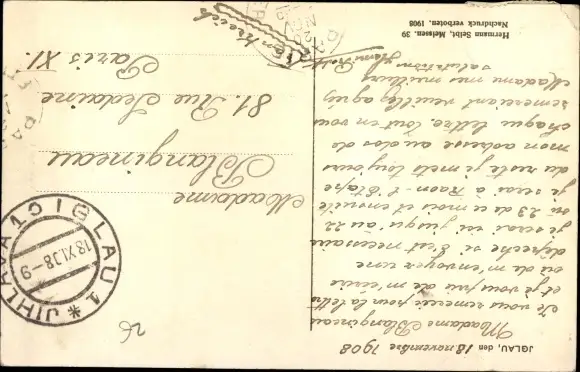 JGLAU, den 18 novembre 1908
Madame Blangineau
Je vous remercie pour la lettre
et je vous prie de m'écrire
où de m'envoyer une
dépêche si c'est necessaire
je serai ici jusqu'au 22
23 de ce mois et ensuite
je serai à Raon-l'Etape
du reste je mets toujours
mon adresse au dos de
chaque lettre. Tout en vous
remerciant veuillez agréer
Madame mes meilleurs
salutations
Hermann Seibt, Meissen. 39
Nachdruck verboten. 1908
Madame
Blangineau
81. Rue Sedaine
Paris XI.
IGLAU 1 * JIHLAVA 1
18.XI.08-9
26